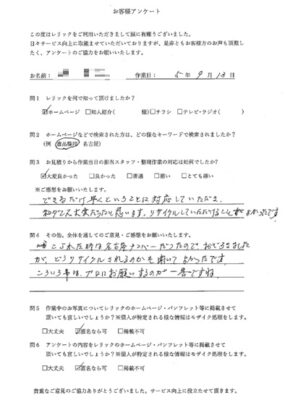 お客様アンケート
この度はレリックをご利用いただきまして誠に有難うございました。
日々サービス向上に取組ませていただいておりますが、是非ともお客様方のお声も頂戴し
たく、アンケートのご協力をお願いいたします。
お名前：
作業日： 5年 9月 12日
問1 レリックを何で知って頂けましたか？
☑ホームページ □知人紹介（ 様）□チラシ □テレビ・ラジオ（ ）
問2 ホームページなどで検索された方は、どの様なキーワードで検索されましたか？
（例 遺品整理 名古屋）
問3 お見積りから作業当日の担当スタッフ・整理作業の対応は如何でしたか？
☑大変良かった □良かった □普通 □悪い □とても悪い
※ご感想をお願いいたします。
できるだけ早くということに対応していただき、
大変だったと思います。リサイクルしていただけることも よかったです
問4 その他、全体を通してのご意見・ご感想をお願いいたします。
た時は名古屋ナンバーだったので おどろきました
が、どうリサイクルされるのかも聞いて よかったです。
こういう事は、プロにお願いするのが一番ですね。
問5 作業中のお写真についてレリックのホームページ・パンフレット等に掲載させて
頂いても宜しいでしょうか？※個人が特定される様な情報はモザイク処理をします。
□大丈夫 ☑匿名なら可 □掲載不可
問6 アンケートの内容をレリックのホームページ・パンフレット等に掲載させて
頂いても宜しいでしょうか？※個人が特定される様な情報はモザイク処理をします。
□大丈夫 ☑匿名なら可 □掲載不可
貴重なご意見のご協力ありがとうございました。サービス向上に役立たせて頂きます。